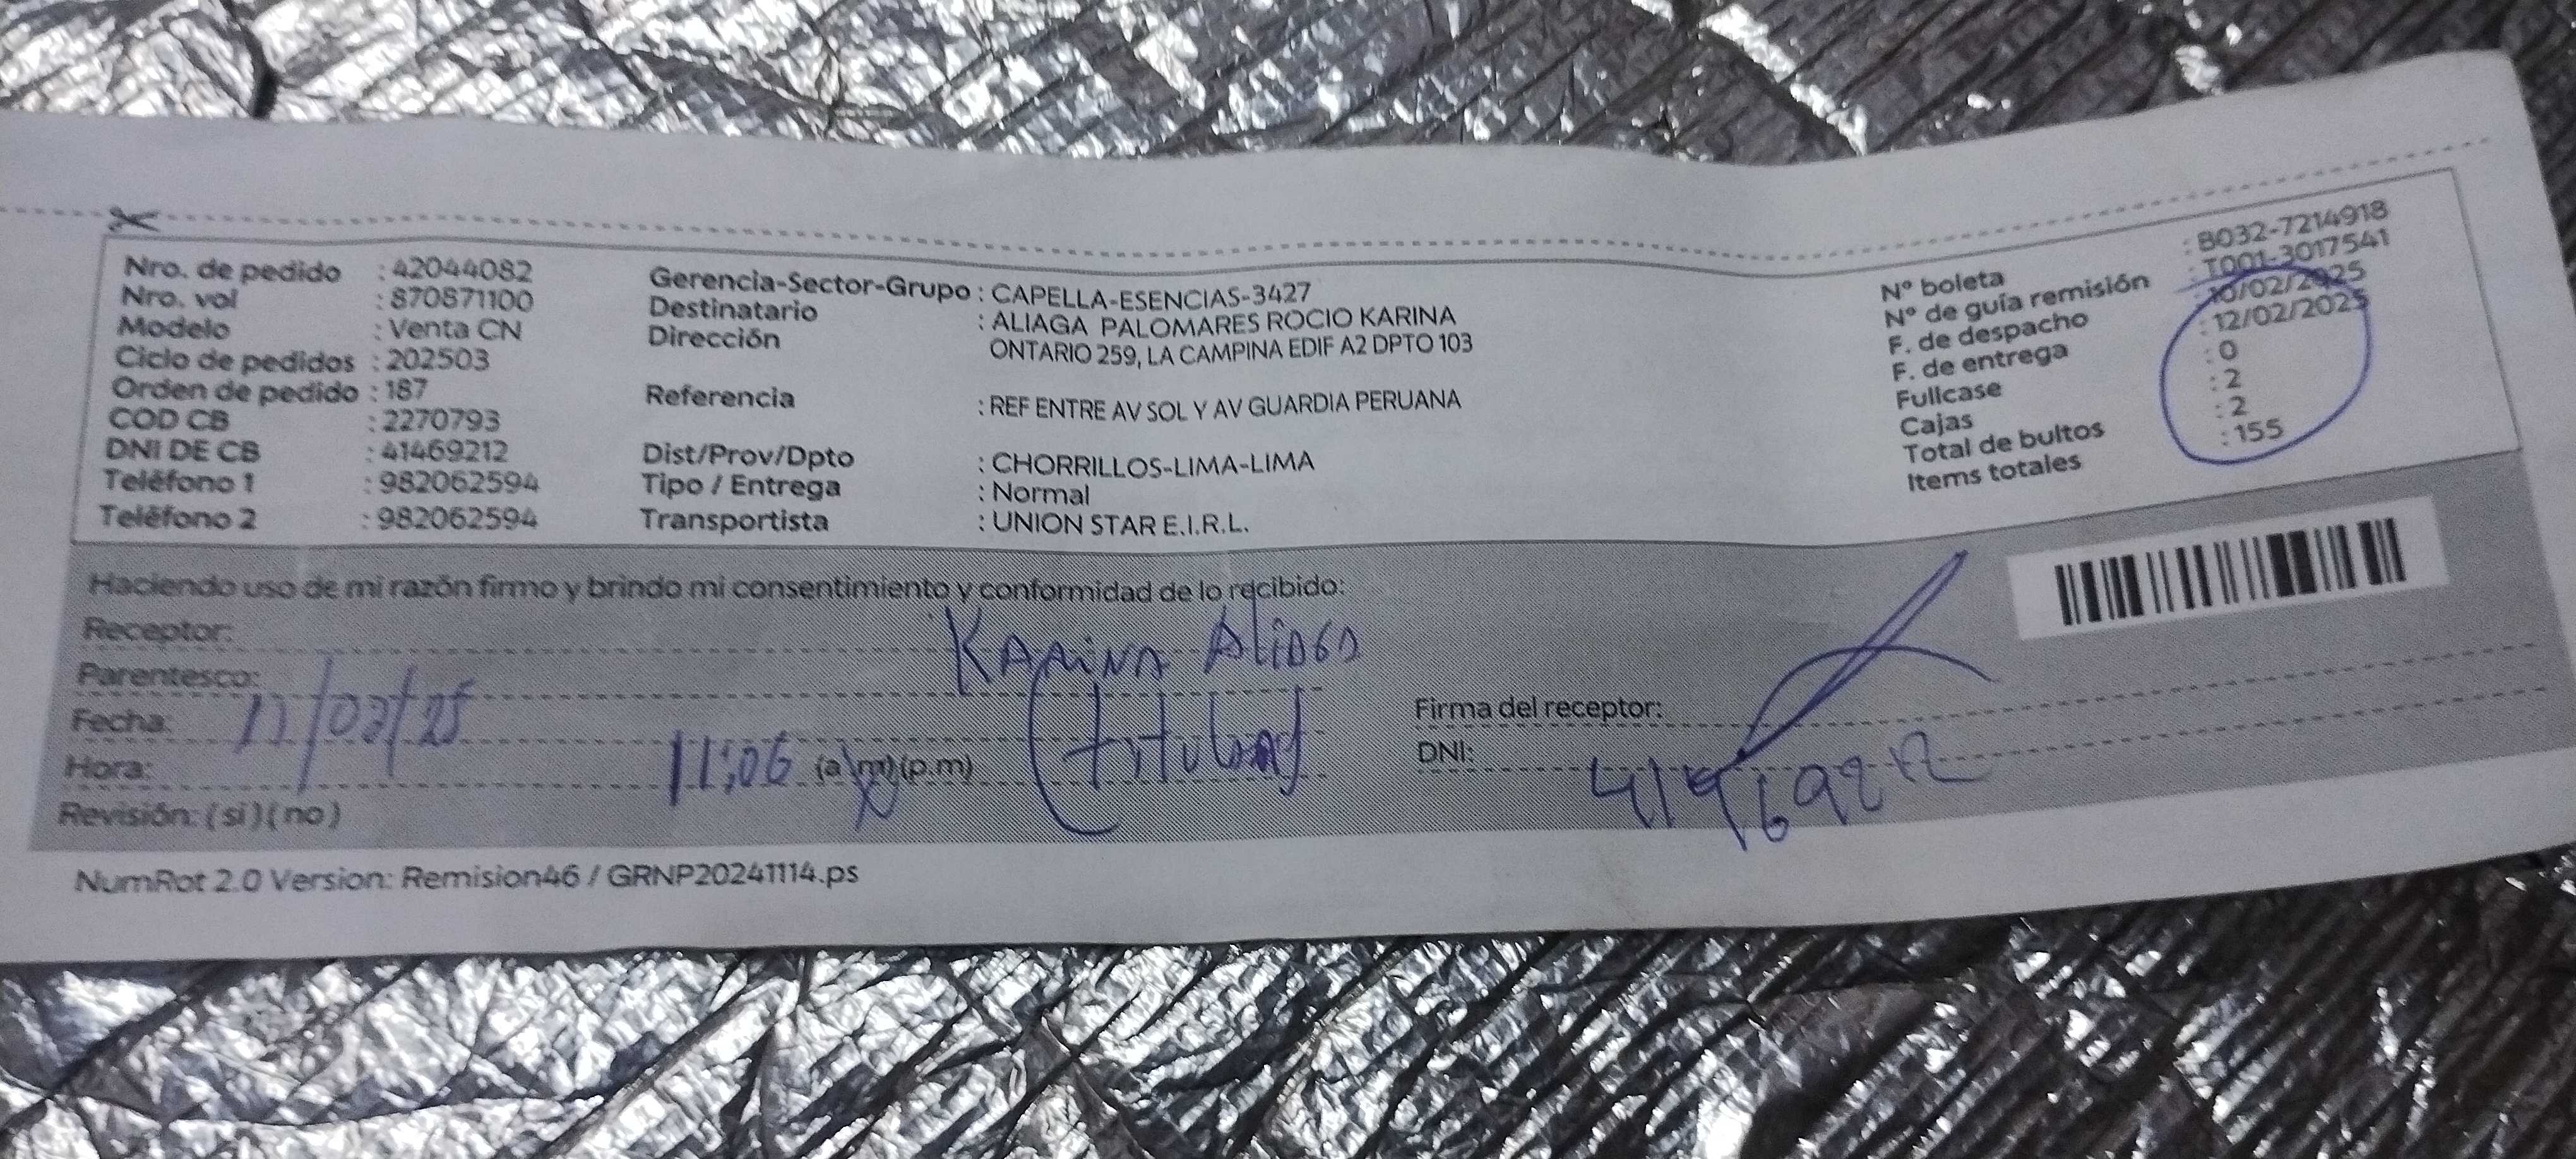 Nro. de pedido : 42044082
Nro. vol : 870871100
Modelo : Venta CN
Ciclo de pedidos : 202503
Orden de pedido : 187
COD CB : 2270793
DNI DE CB : 41469212
Teléfono 1 : 982062594
Teléfono 2 : 982062594
Gerencia-Sector-Grupo : CAPELLA-ESENCIAS-3427
Destinatario : ALIAGA PALOMARES ROCIO KARINA
Dirección ONTARIO 259, LA CAMPINA EDIF A2 DPTO 103
Referencia : REF ENTRE AV SOL Y AV GUARDIA PERUANA
Dist/Prov/Dpto : CHORRILLOS-LIMA-LIMA
Tipo / Entrega : Normal
Transportista : UNION STAR E.I.R.L.
N° boleta : B032-7214918
N° de guía remisión : T001-3017541
F. de despacho : 10/02/2025
F. de entrega : 12/02/2025
Fullcase : 0
Cajas : 2
Total de bultos : 2
Items totales : 155
Haciendo uso de mi razón firmo y brindo mi consentimiento y conformidad de lo recibido:
Receptor: KARINA ALIAGA
Parentesco: (titular)
Fecha:
Hora: 11:06 (a.m)(p.m)
Revisión: (si)(no)
Firma del receptor:
DNI:
NumRot 2.0 Version: Remision46 / GRNP20241114.ps